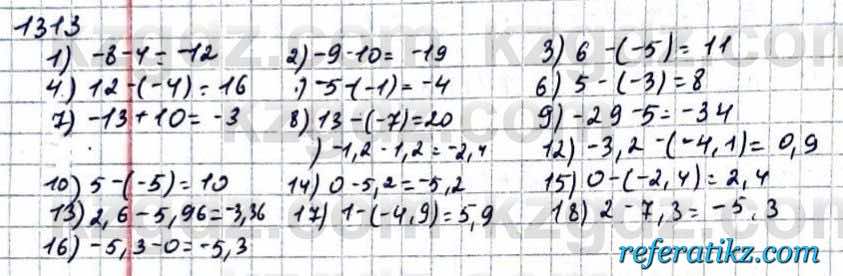 1313
1) -8-4=-12 2) -9-10= -19 3) 6 -(-5)= 11
4.) 12-(-4)=16 ) -5-(-1)=-4 6) 5-(-3)=8
7) -13+10=-3 8) 13-(-7)=20 9) -29-5=-34
) -1,2-1,2=-2,4 12) -3,2-(-4,1)= 0,9
10) 5-(-5)=10 14) 0-5,2=-5,2 15) 0-(-2,4)=2,4
13) 2,6-5,96=-3,36 17) 1-(-4,9)=5,9 18) 2-7,3=-5,3
16) -5,3-0=-5,3
referatikz.com